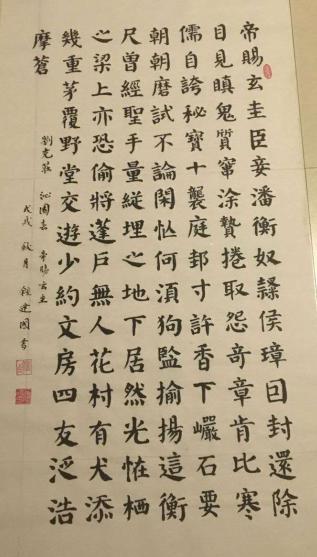 帝賜玄圭臣妾潘衡奴隸侯璋囙封還除
目見瞋鬼質窜涂贄捲取怨奇章肯比寒
儒自誇秘寳十襲庭邽寸許香下巖石要
朝朝磨試不論閑忙何湏狗監揄揚這衡
尺曽經聖手量縦埋之地下居然光恠栖
之梁上亦恐偷將蓬戶無人花村有犬添
幾重茅覆野堂交遊少約文房四友泛浩
摩蒼
劉克莊 沁園春 帝賜玄圭
戊戌 秋月 建國書